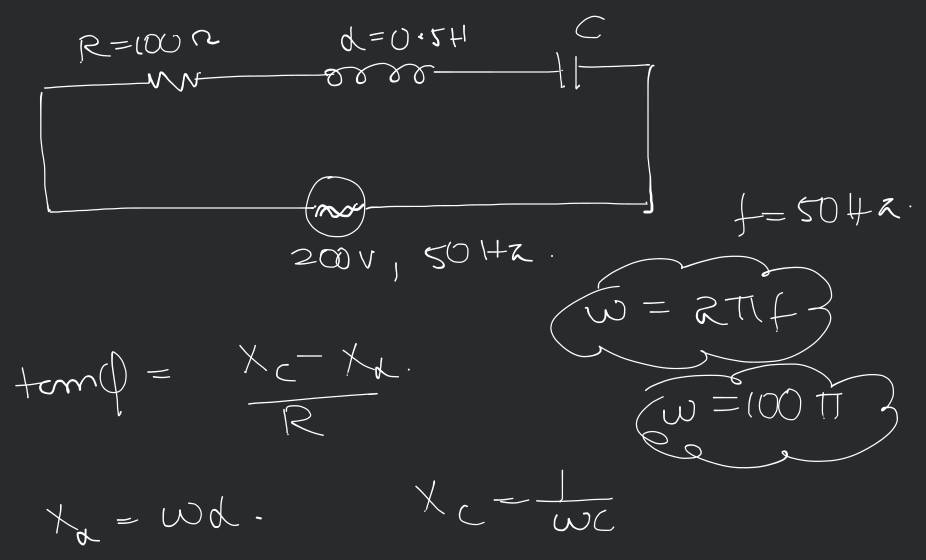 R=100Ω L=0.5H C
200V, 50Hz.
f=50Hz.
ω = 2πf
tanφ = (X_C − X_L)/R
ω=100π
X_L = ωL.
X_C = 1/ωC